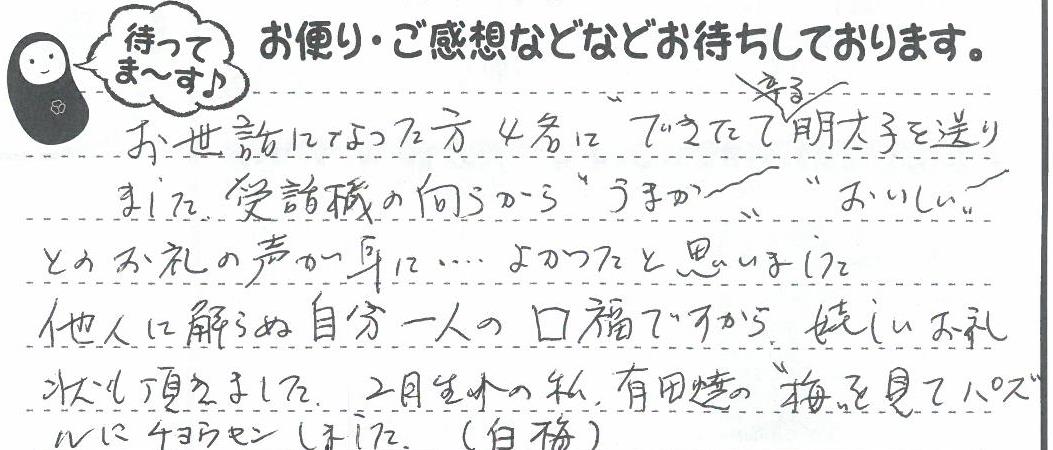 待って
ま〜す♪
お便り・ご感想などなどお待ちしております。
お世話になった方4名に"できたて辛子明太子を送り
ました。受話機の向うから"うまかー" "おいしいー"
とのお礼の声が耳に‥‥よかったと思いました
他人に解らぬ自分一人の口福ですから。嬉しいお礼
状も頂きました。2月生れの私、有田焼の"梅"を見てパズ
ルにチョウセンしました。(白梅)